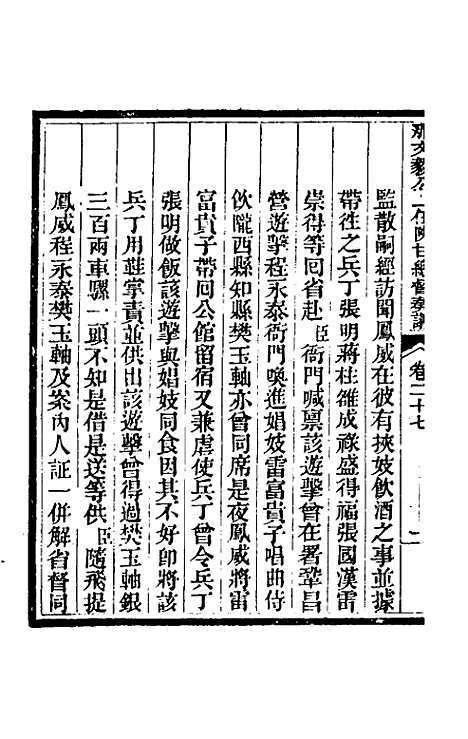 那文毅公二任陝甘總督奏議　卷二十七　二
監散嗣經訪聞鳳威在彼有挾妓飲酒之事並據
帶徃之兵丁張明蔣柱維成祿盛得福張國漢雷
崇得等囘省赴臣衙門喊禀該遊擊曾在署鞏昌
營遊擊程永泰衙門喚進娼妓雷富貴子唱曲侍
飲隴西縣知縣樊玉軸亦曾同席是夜鳳威將雷
富貴子帶囘公館留宿又兼虐使兵丁曾令兵丁
張明做飯該遊擊與娼妓同食因其不好卽將該
兵丁用鞋掌責並供出該遊擊曾得過樊玉軸銀
三百兩車騾一頭不知是借是送等供臣隨飛提
鳳威程永泰樊玉軸及案內人証一併解省督同